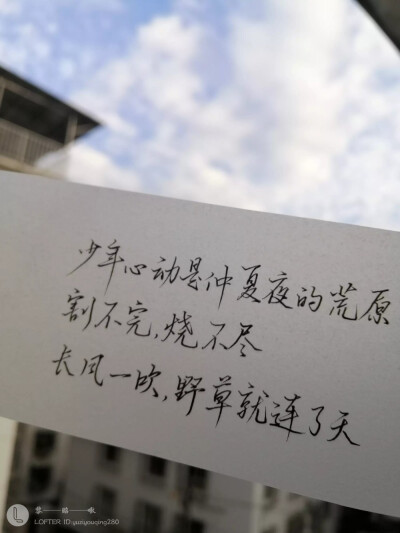 少年心动是仲夏夜的荒原
割不完,烧不尽
长风一吹,野草就连了天
LOFTER ID:yueyouqing280